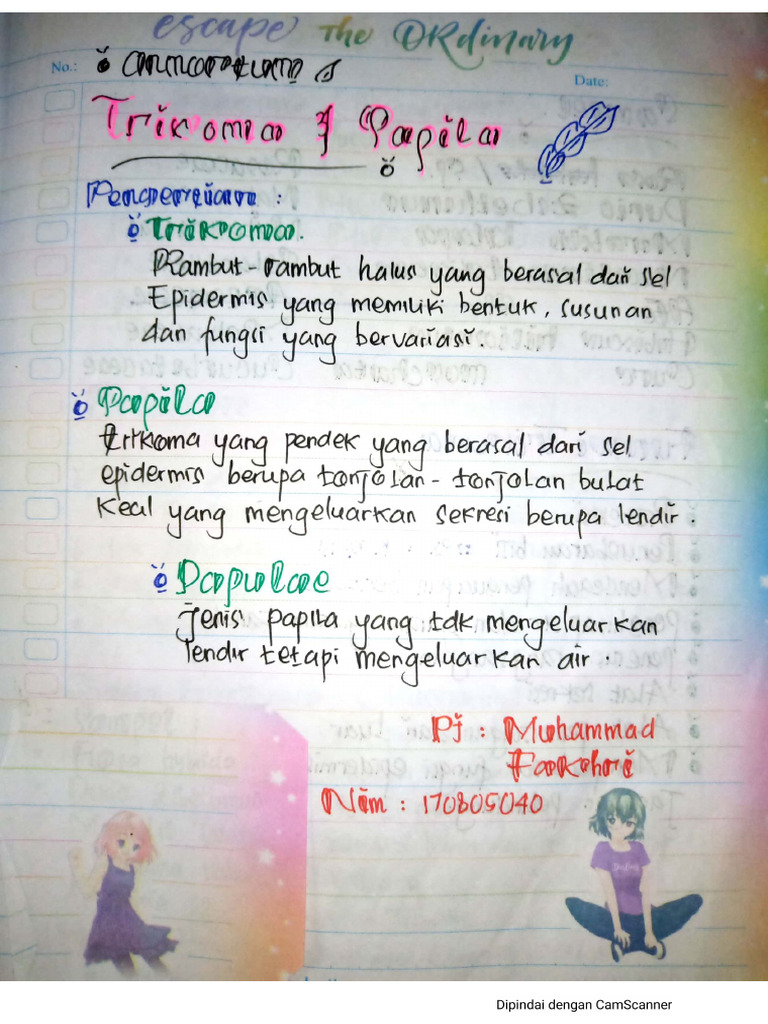 escape the ORdinary
No.:
Date:
Trikoma & Papila
Pengertian :
Trikoma.
Rambut-rambut halus yang berasal dari sel
Epidermis yang memiliki bentuk, susunan
dan fungsi yang bervariasi.
Papila
trikoma yang pendek yang berasal dari sel
epidermis berupa tonjolan-tonjolan bulat
kecil yang mengeluarkan sekresi berupa lendir.
Papulae
Jenis papila yang tdk mengeluarkan
lendir tetapi mengeluarkan air.
Pj : Muhammad
Nim : 170805040
Dipindai dengan CamScanner